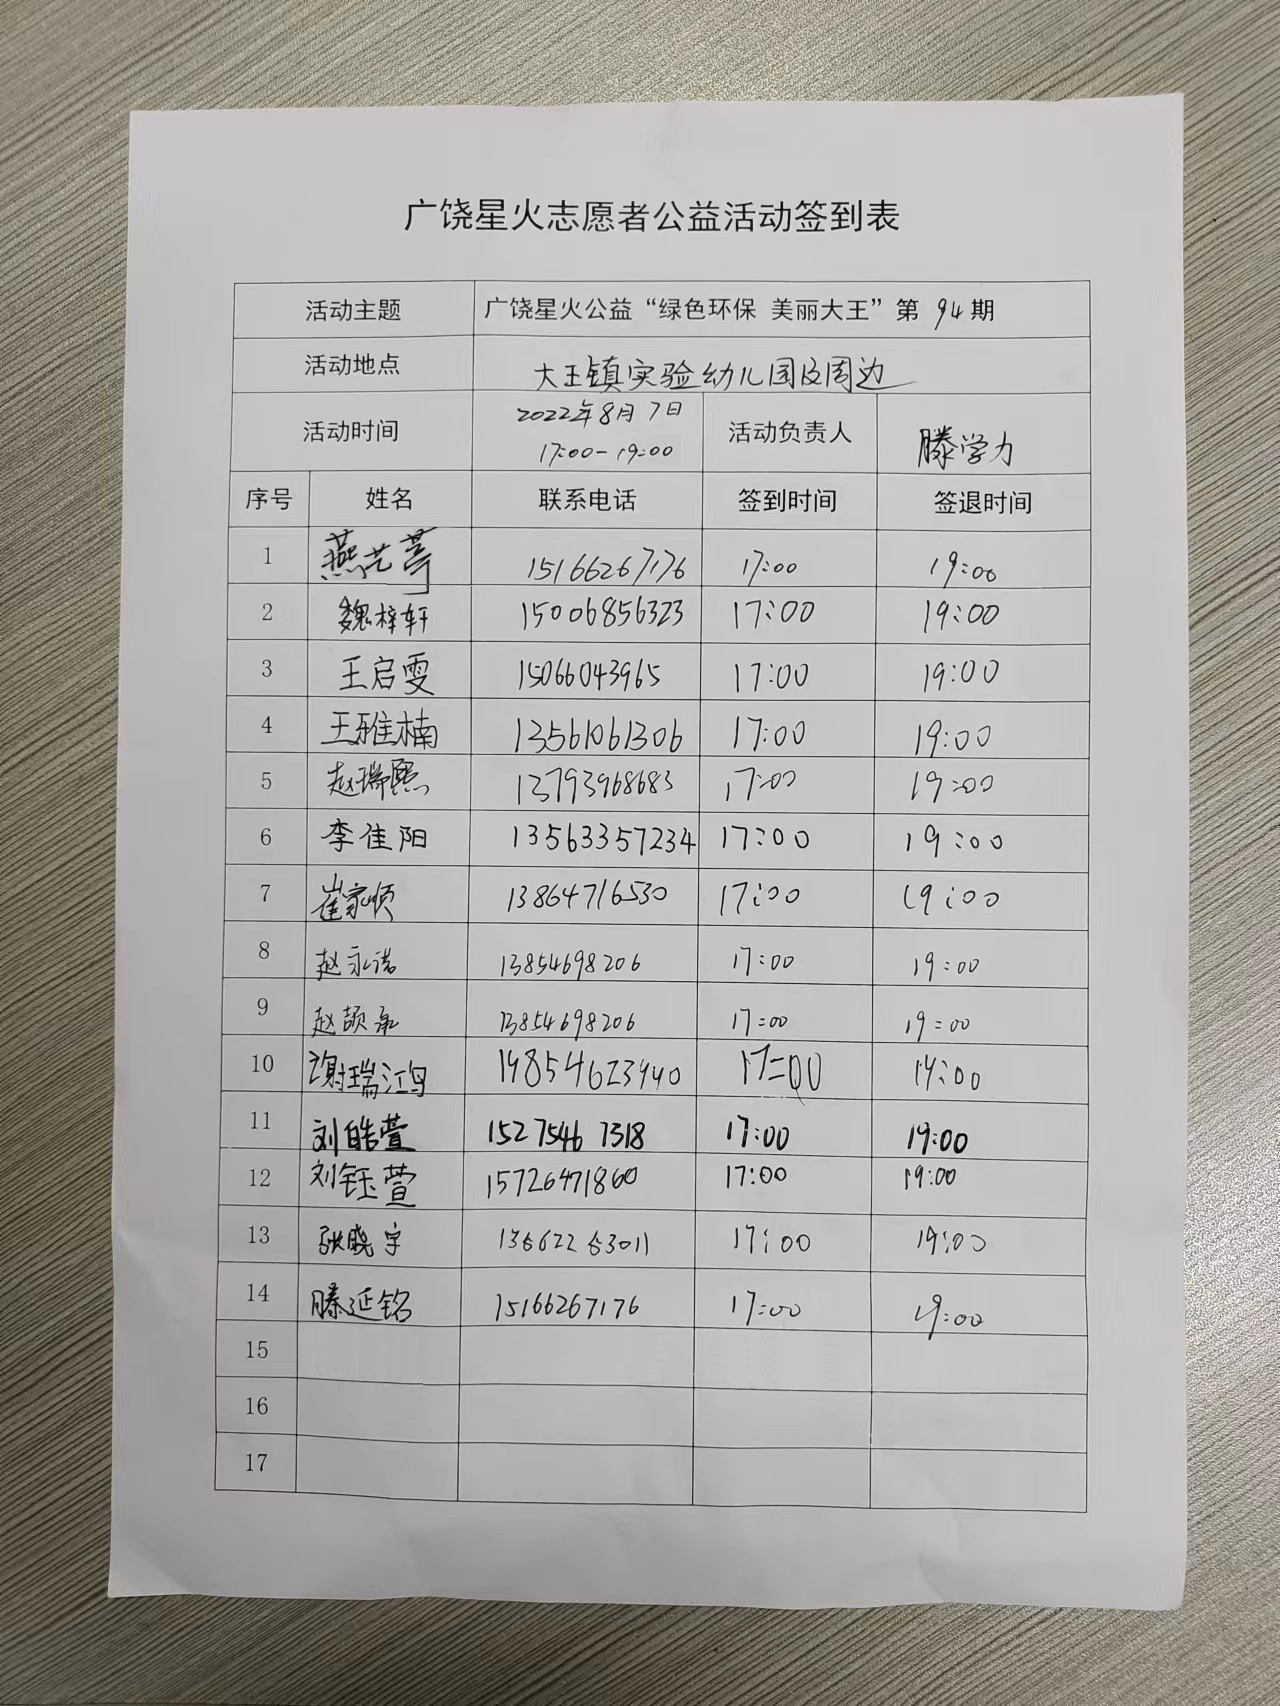 广饶星火志愿者公益活动签到表
活动主题 广饶星火公益“绿色环保 美丽大王”第 94 期
活动地点 大王镇实验幼儿园及周边
活动时间 2022年8月7日 17:00-19:00 活动负责人 滕学力
序号 姓名 联系电话 签到时间 签退时间
1 燕艺 15166267176 17:00 19:00
2 魏梓轩 15006856323 17:00 19:00
3 王启雯 15066043965 17:00 19:00
4 王雅楠 13561061306 17:00 19:00
5 赵瑞熙 13793968683 17:00 19:00
6 李佳阳 13563357234 17:00 19:00
7 崔家顺 13864716530 17:00 19:00
8 赵永诺 13854698206 17:00 19:00
9 赵颉承 13854698206 17:00 19:00
10 谢瑞鸿 17:00 19:00
11 刘皓萱 15275467318 17:00 19:00
12 刘钰萱 15726471860 17:00 19:00
13 张晓宇 17:00 19:00
14 滕延铭 15166267176 17:00 19:00
15
16
17